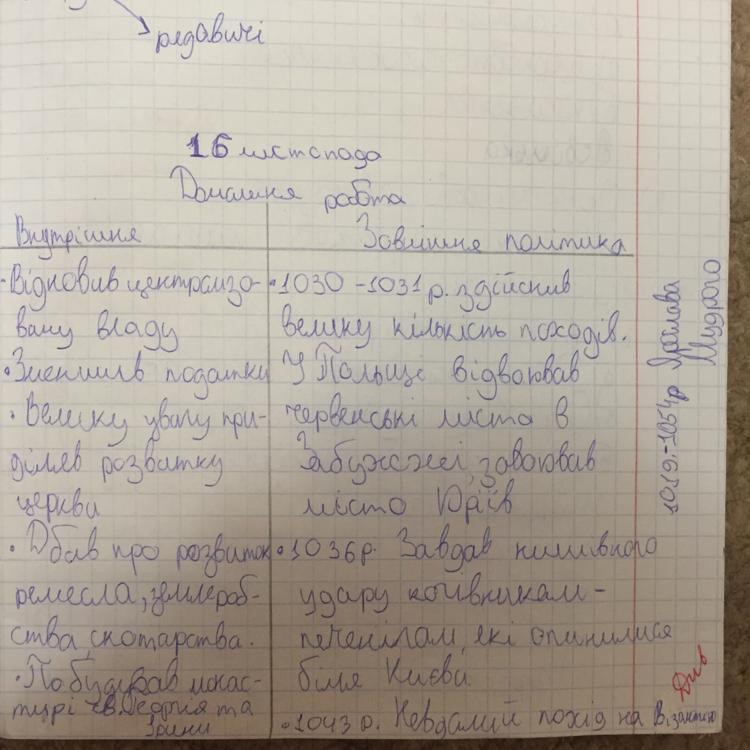 рядовичі
16 листопада
Домашня робота
Внутрішня
Зовнішня політика
• Відновив централізо-
вану владу
• Зменшив податки
• Велику увагу при-
діляв розвитку
церкви
• Дбав про розвиток
ремесла, землероб-
ства, скотарства.
• Побудував монас-
тирі св. Георгія та
Ірини
• 1030 - 1031 р. здійснив
велику кількість походів.
У Польще відвоював
червенські міста в
Забужжі, завоював
місто Юр'їв
• 1036 р. Завдав нищівного
удару кочівникам -
печенігам, які опинилися
біля Києва.
• 1043 р. Невдалий похід на Візантію
1019-1054р Ярослава
Мудрого
Див